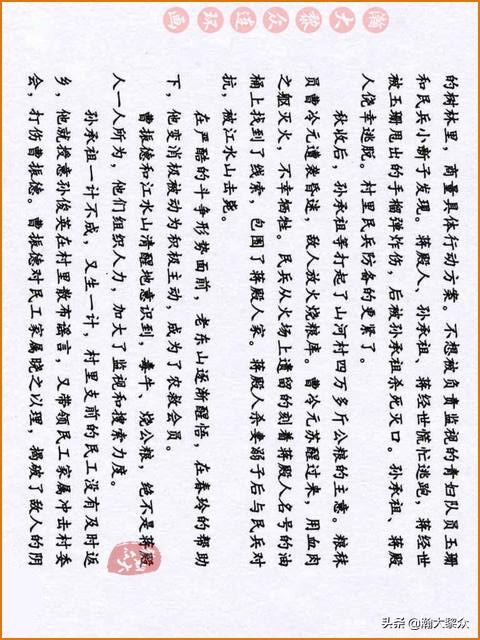 瀚大黎众连环画
的树林里，商量具体行动方案。不想被负责监视的青妇队员玉珊
和民兵小新子发现。蒋殿人、孙承祖、蒋经世慌忙逃跑，蒋经世
被玉珊甩出的手榴弹炸伤，后被孙承祖杀死灭口。孙承祖、蒋殿
人侥幸逃脱。村里民兵防备的更紧了。
秋收后，孙承祖等打起了山河村四万多斤公粮的主意。粮秣
员曹冷元遭袭昏迷，敌人放火烧粮库。曹冷元苏醒过来，用血肉
之躯灭火，不幸牺牲。民兵从火场上遗留的刻着蒋殿人名号的油
桶上找到了线索，包围了蒋殿人家。蒋殿人杀妻溺子后与民兵对
抗，被江水山击毙。
在严酷的斗争形势面前，老东山逐渐醒悟，在春玲的帮助
下，他变消极被动为积极主动，成为了农救会员。
曹振德和江水山清醒地意识到，毒牛、烧公粮，绝不是蒋殿
人一人所为，他们组织人力，加大了监视和搜索力度。
孙承祖一计不成，又生一计，村里支前的民工没有及时返
乡，他就授意孙俊英在村里散布谣言，又带领民工家属冲击村委
会，打伤曹振德。曹振德对民工家属晓之以理，揭破了敌人的阴
头条 @瀚大黎众